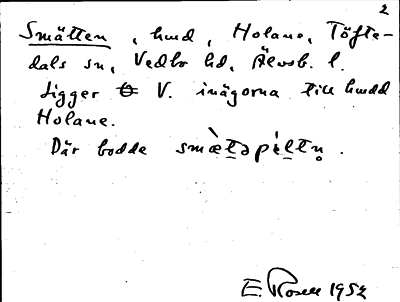 2
Smätten, hmd, Holane, Töfte-
dals sn, Vedbo hd, Älvsb. l.
Ligger Ö V. inägorna till hmdd
Holane.
Där bodde smæ̀təpéltn̥.
E. Rosell 1952